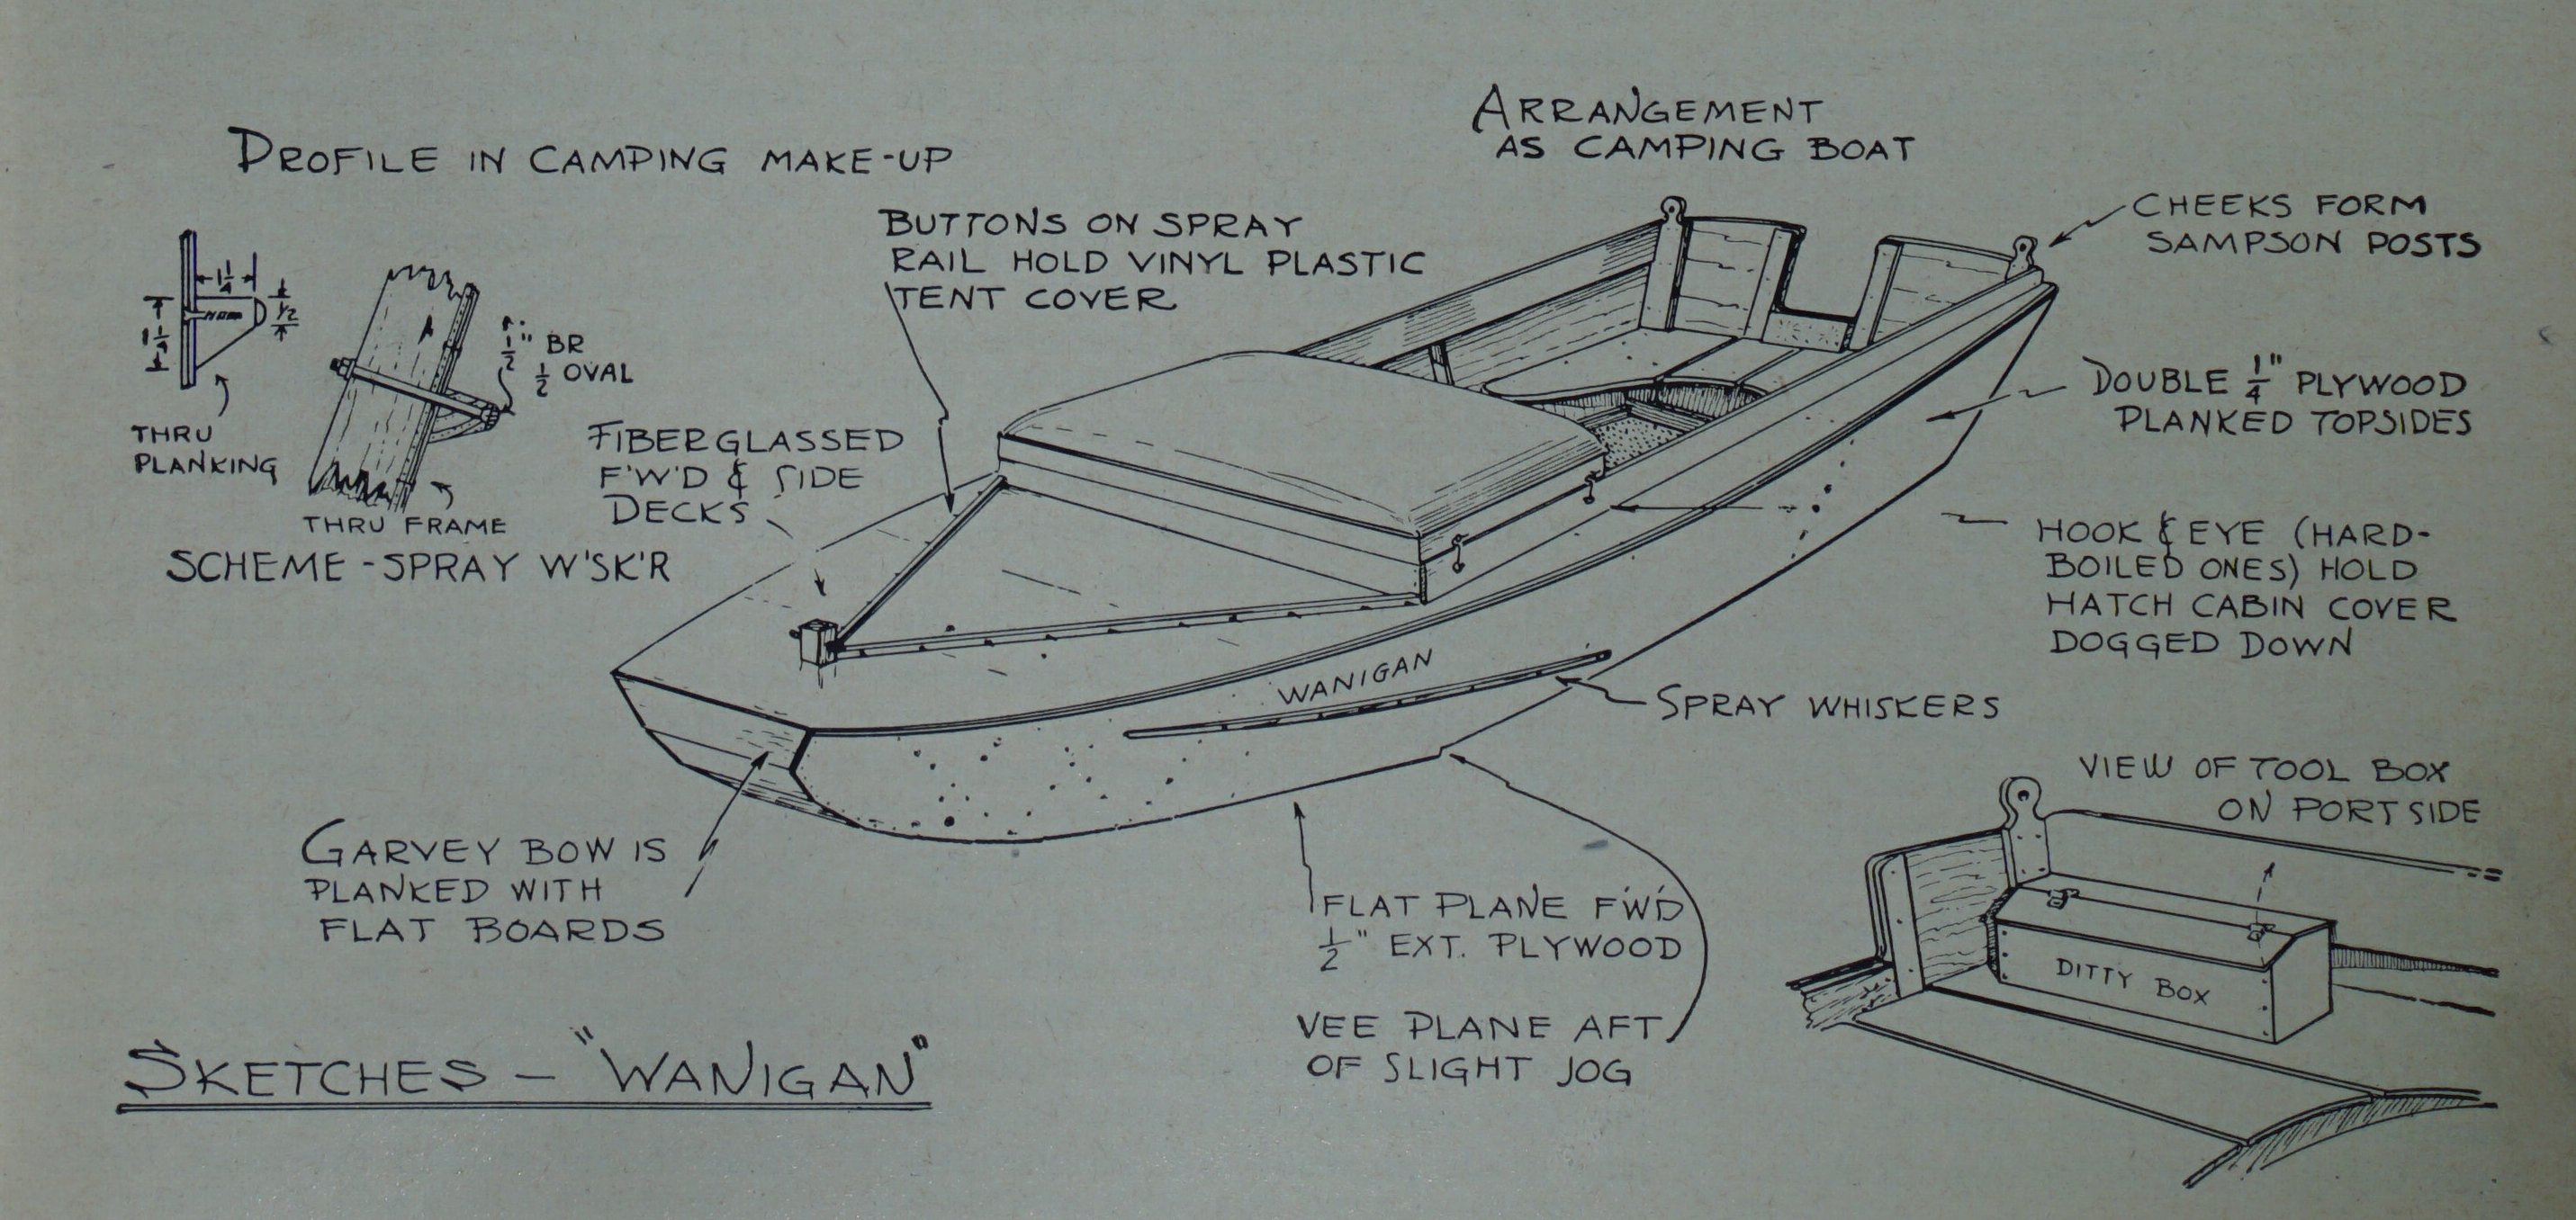 PROFILE IN CAMPING MAKE-UP
ARRANGEMENT
AS CAMPING BOAT
BUTTONS ON SPRAY
RAIL HOLD VINYL PLASTIC
TENT COVER
CHEEKS FORM
SAMPSON POSTS
1 1/4
1/2
1 1/4
1/2" BR
1/2 OVAL
THRU
PLANKING
THRU FRAME
SCHEME - SPRAY W'SK'R
FIBERGLASSED
F'W'D & SIDE
DECKS
DOUBLE 1/4" PLYWOOD
PLANKED TOPSIDES
HOOK & EYE (HARD-
BOILED ONES) HOLD
HATCH CABIN COVER
DOGGED DOWN
WANIGAN
SPRAY WHISKERS
GARVEY BOW IS
PLANKED WITH
FLAT BOARDS
FLAT PLANE FW'D
1/2" EXT. PLYWOOD
VEE PLANE AFT
OF SLIGHT JOG
VIEW OF TOOL BOX
ON PORT SIDE
DITTY BOX
SKETCHES - "WANIGAN"